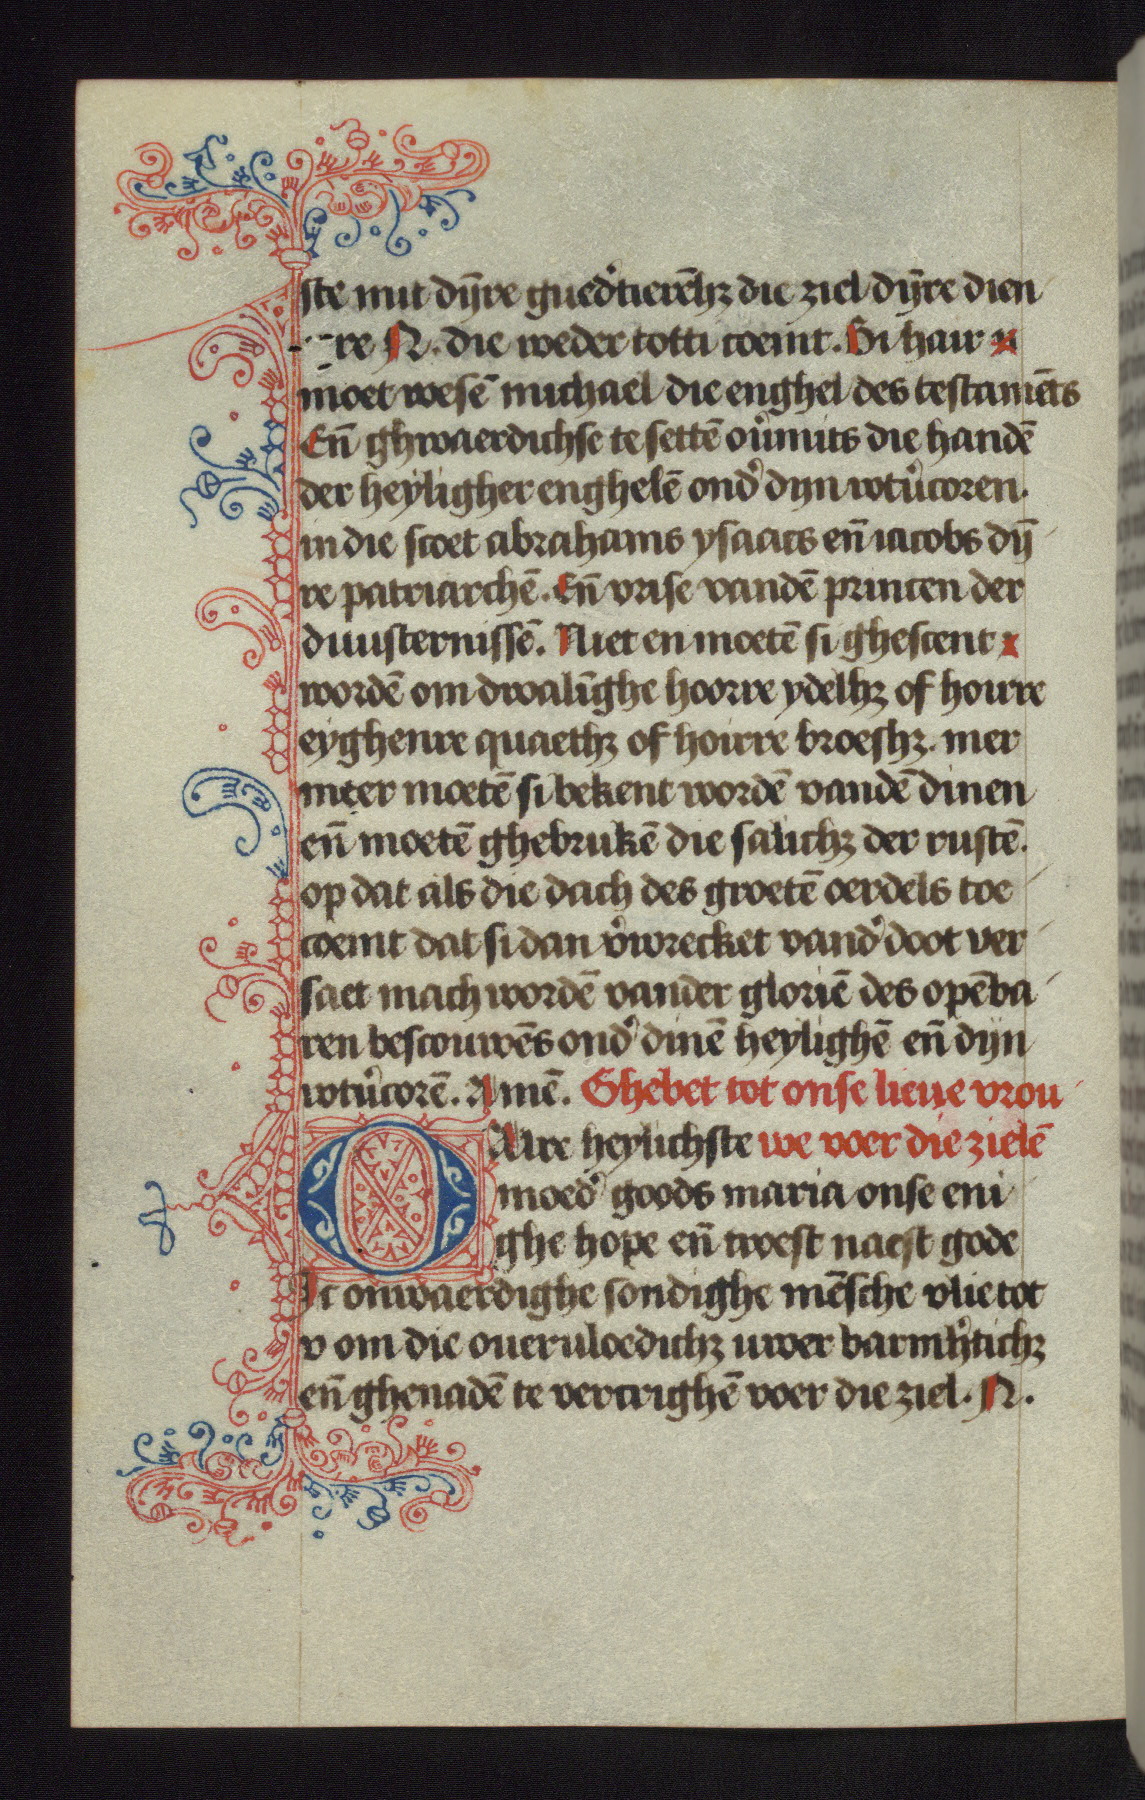 ste mit dȳre gued͛tierēhꝫ die ziel dȳre dien
re N. die weder totti coemt. Si hair
moet wesē michael die enghel des testamēts
Eñ ghwaerdichse te settē oūmits die handē
der heyligher enghelē ond͛ dyn wtūcoren.
in die scoet abrahams ysaacs eñ iacobs dȳ
re patriarchē. Eñ vrise vandē princen der
duusternissē. Niet en moetē si ghescent
wordē om dwalīghe hoorre ydelhꝫ of hoirre
eyghenre quaethꝫ of hoirre broeshꝫ. mer
meer moetē si bekent wordē vandē dinen
eñ moetē ghebrukē die salichꝫ der rustē.
op dat als die dach des groetē oerdels toe
coemt dat si dan v͛wrecket vand͛ doot ver
saet mach wordē vander gloriē des opēba
ren bescouwēs ond͛ dinē heylighē eñ dijn
wtūcorē. Amē. Ghebet tot onse lieue vrou
O Alre heylichste we voer die zielē
moed͛ goods maria onse eni
ghe hope eñ twest naest gode
Ic onwaerdighe sondighe mēsche vlie tot
v om die oueruloedichꝫ uwer barmh͛tichꝫ
eñ ghenadē te vercrighē voer die ziel. N.